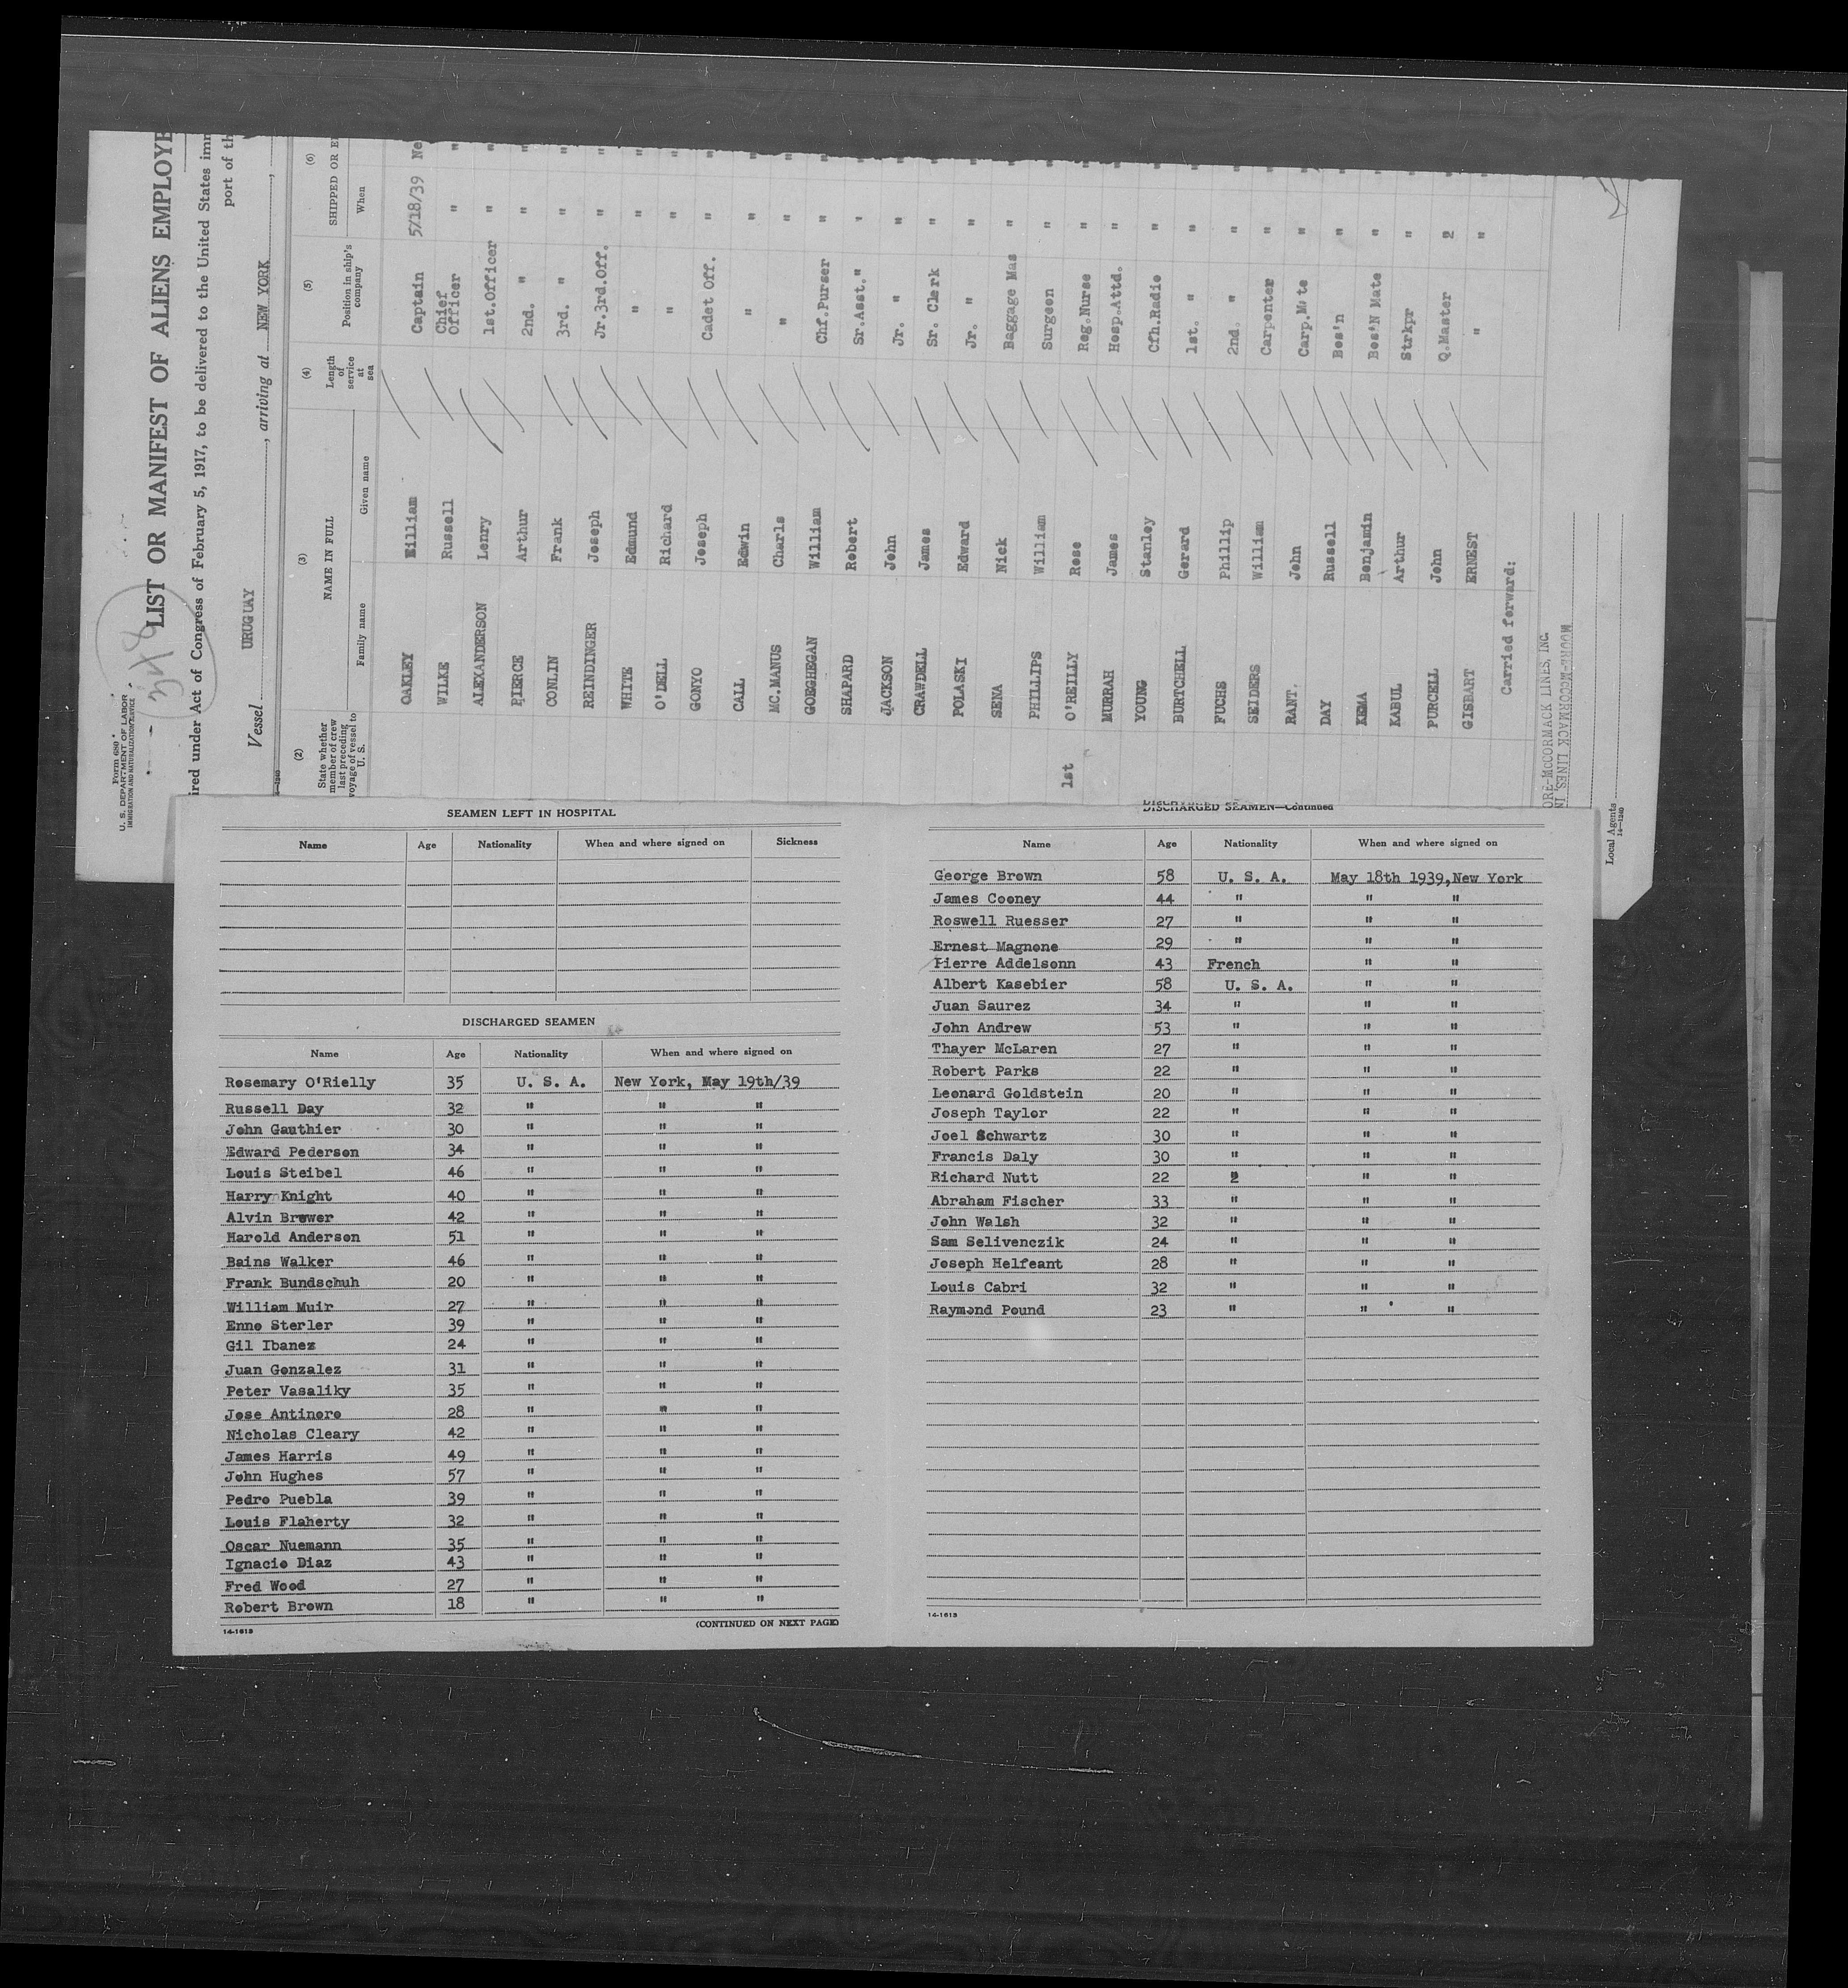 Form 680
U. S. DEPARTMENT OF LABOR
IMMIGRATION AND NATURALIZATION SERVICE
348
LIST OR MANIFEST OF ALIENS EMPLOYE
ired under Act of Congress of February 5, 1917, to be delivered to the United States imm
port of th
Vessel URUGUAY, arriving at NEW YORK,
14—1240
(2) (3) (4) (5) (6)
State whether member of crew last preceding voyage of vessel to U. S. NAME IN FULL Length of service at sea Position in ship's company SHIPPED OR E
Family name Given name When
OAKLEY Eilliam Captain 5/18/39 Ne
WILKE Russell Chief Officer " "
ALEXANDERSON Lenry 1st.Officer " "
PIERCE Arthur 2nd. " " "
CONLIN Frank 3rd. " " "
REINDINGER Joseph Jr.3rd.Off. " "
WHITE Edmund " " "
O'DELL Richard " " "
GONYO Joseph Cadet Off. " "
CALL Edwin " " "
MC.MANUS Charls " " "
GOEGHEGAN William Chf.Purser " "
SHAPARD Robert Sr.Asst." " "
JACKSON John Jr. " " "
CRAWDELL James Sr. Clerk " "
POLASKI Edward Jr. " " "
SENA Nick Baggage Mas " "
PHILLIPS William Surgeon " "
1st O'REILLY Rose Reg.Nurse " "
MURRAH James Hosp.Attd. " "
YOUNG Stanley Cfh.Radio " "
BURTCHELL Gerard 1st. " " "
FUCHS Phillip 2nd. " " "
SEIDERS William Carpenter " "
RANT. John Carp.Mate " "
DAY Russell Bos'n " "
KEMA Benjamin Bos'N Mate " "
KABUL Arthur Strkpr " "
PURCELL John Q.Master 2 "
GISBART ERNEST " " "
Carried forward:
ORE-McCORMACK LINES, INC.
MOORE-McCORMACK LINES IN
Local Agents
14—1240
SEAMEN LEFT IN HOSPITAL
Name Age Nationality When and where signed on Sickness
DISCHARGED SEAMEN
Name Age Nationality When and where signed on
Rosemary O'Rielly 35 U. S. A. New York, May 19th/39
Russell Day 32 " " "
John Gauthier 30 " " "
Edward Pederson 34 " " "
Louis Steibel 46 " " "
Harry Knight 40 " " "
Alvin Brewer 42 " " "
Harold Anderson 51 " " "
Bains Walker 46 " " "
Frank Bundschuh 20 " " "
William Muir 27 " " "
Enno Sterler 39 " " "
Gil Ibanez 24 " " "
Juan Gonzalez 31 " " "
Peter Vasaliky 35 " " "
Jose Antinoro 28 " " "
Nicholas Cleary 42 " " "
James Harris 49 " " "
John Hughes 57 " " "
Pedro Puebla 39 " " "
Louis Flaherty 32 " " "
Oscar Nuemann 35 " " "
Ignacio Diaz 43 " " "
Fred Wood 27 " " "
Robert Brown 18 " " "
(CONTINUED ON NEXT PAGE)
14-1613
DISCHARGED SEAMEN—Continued
Name Age Nationality When and where signed on
George Brown 58 U. S. A. May 18th 1939,New York
James Cooney 44 " " "
Roswell Ruesser 27 " " "
Ernest Magnone 29 " " "
Pierre Addelsonn 43 French " "
Albert Kasebier 58 U. S. A. " "
Juan Saurez 34 " " "
John Andrew 53 " " "
Thayer McLaren 27 " " "
Robert Parks 22 " " "
Leonard Goldstein 20 " " "
Joseph Taylor 22 " " "
Joel Schwartz 30 " " "
Francis Daly 30 " " "
Richard Nutt 22 2 " "
Abraham Fischer 33 " " "
John Walsh 32 " " "
Sam Selivenczik 24 " " "
Joseph Helfeant 28 " " "
Louis Cabri 32 " " "
Raymond Pound 23 " " "
14-1613